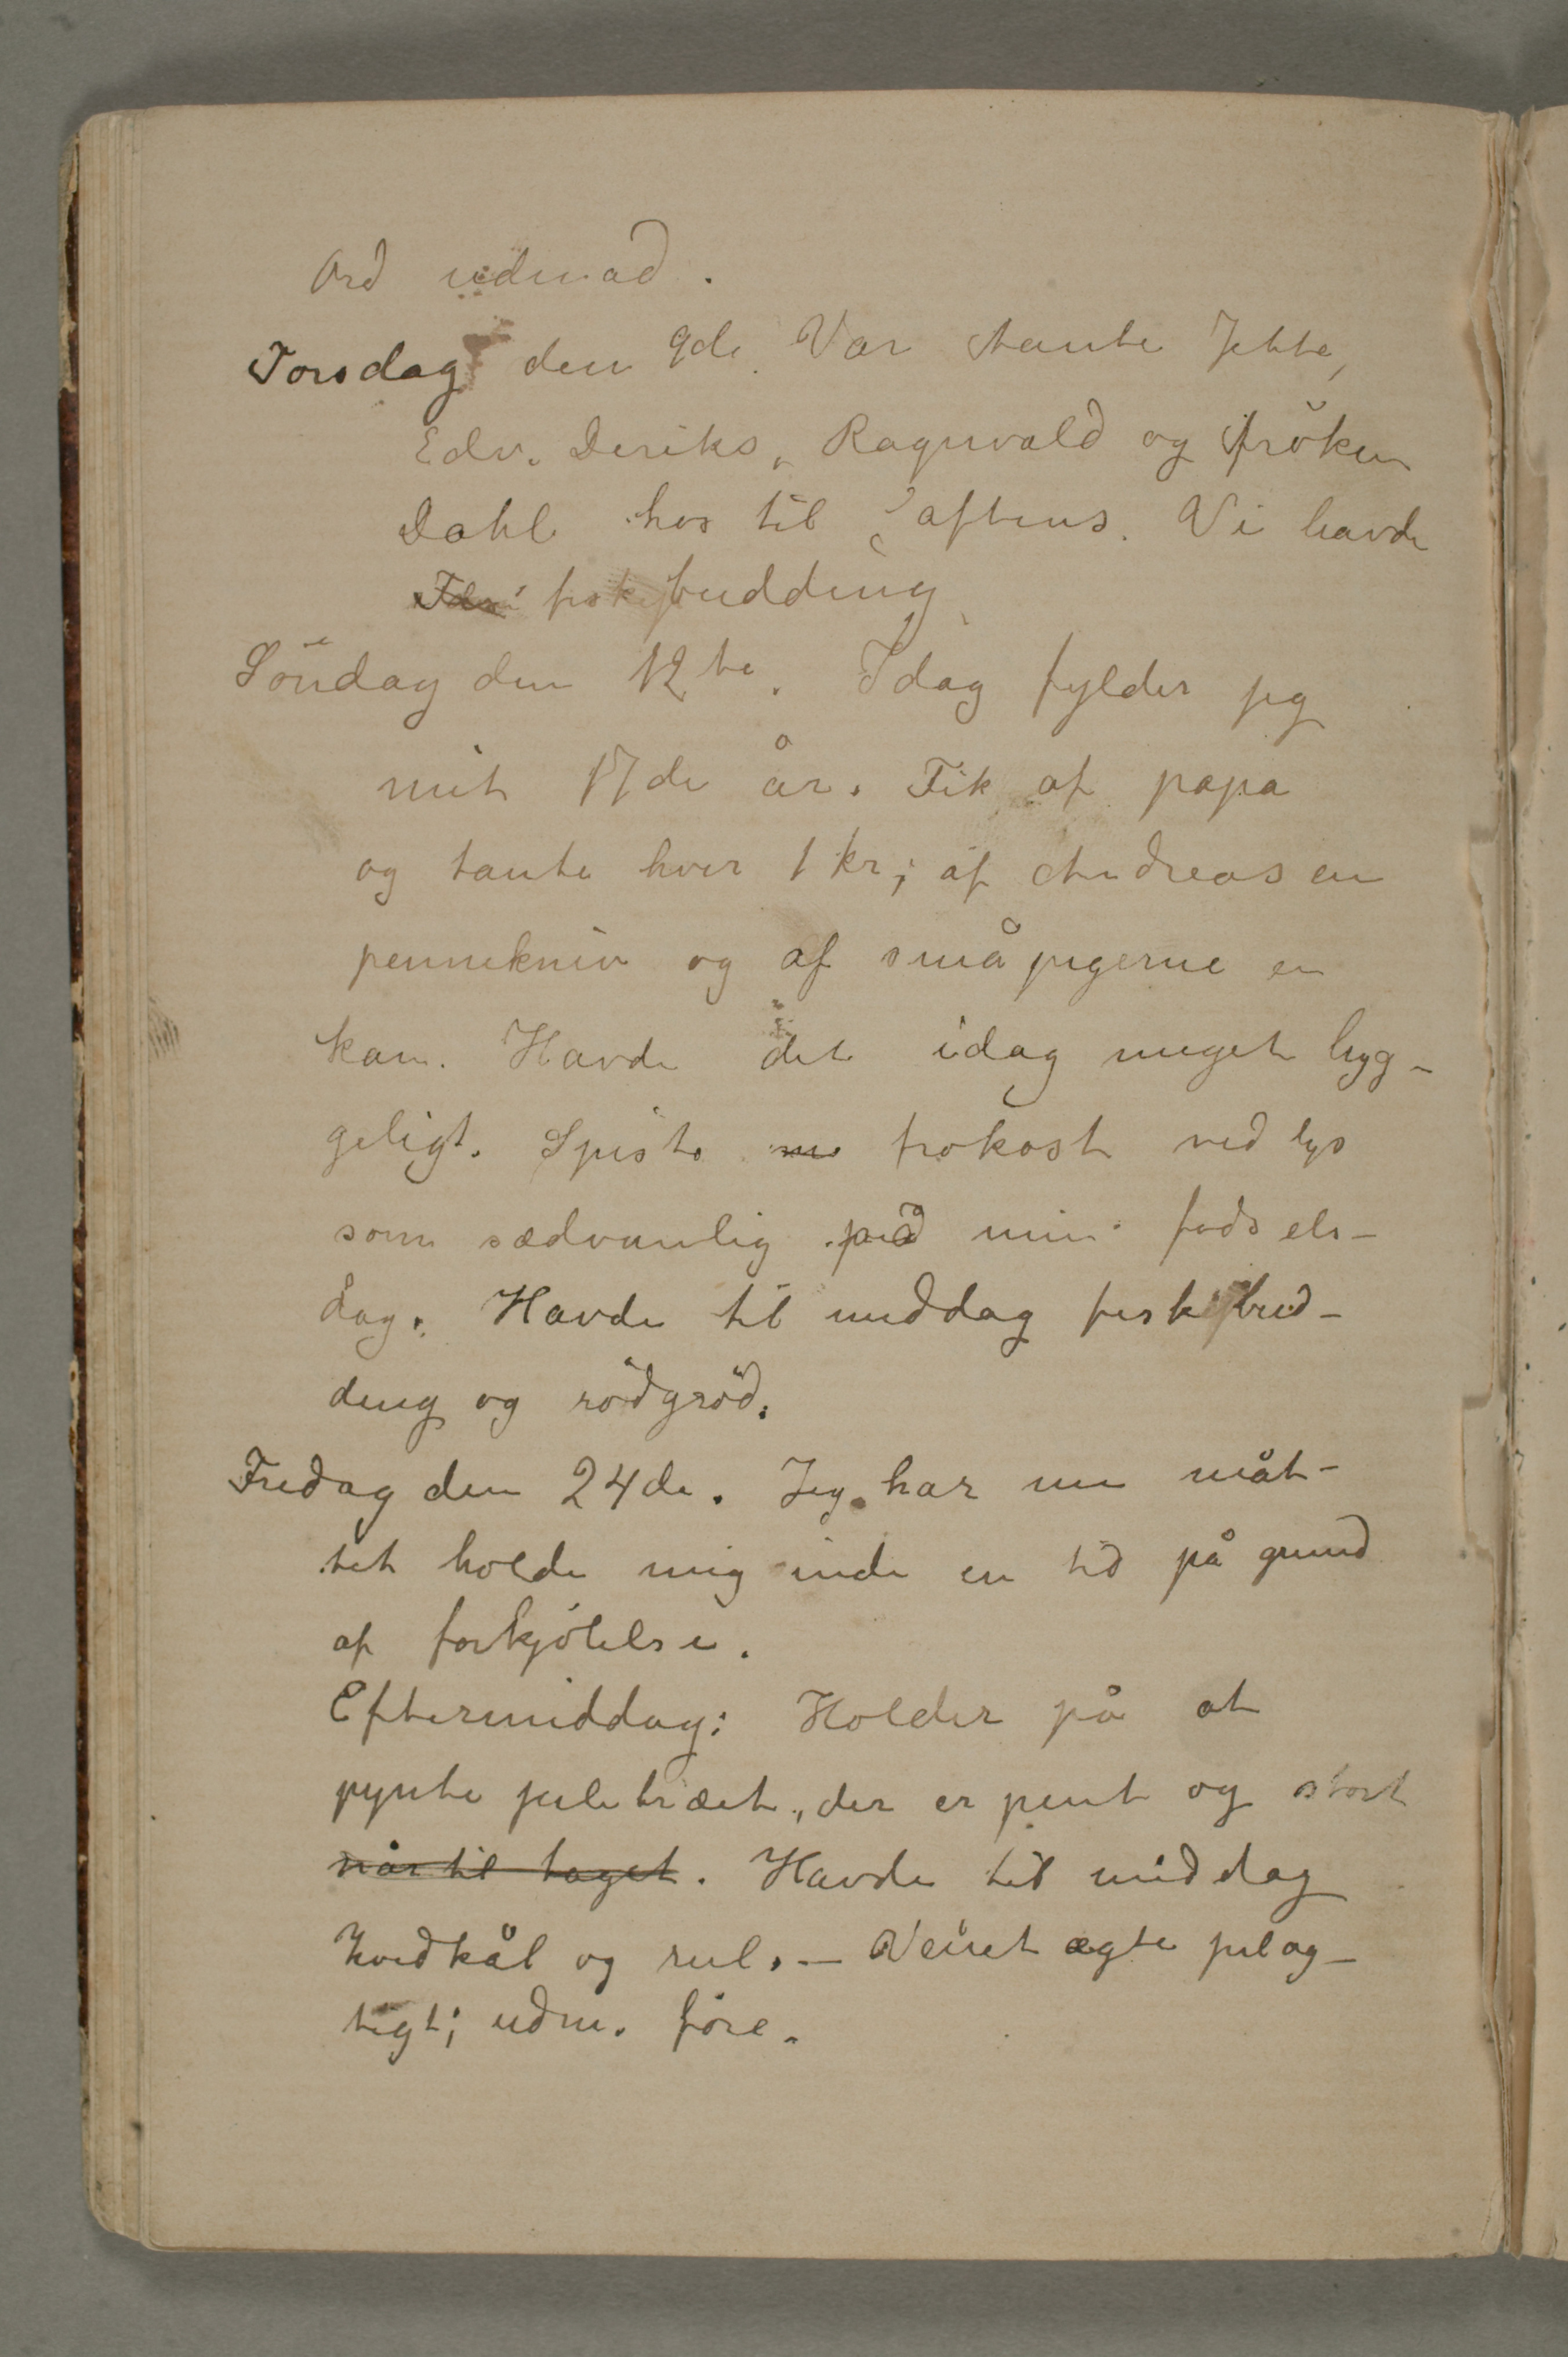 Ord udenad.
Torsdag den 9de. Var tante Jette,
Edv. Deriks, Ragnvald og fröken
Dahl hos til aftens. Vi havde
fiskepudding
Söndag den 12te. Idag fylder jeg
mit 17de år. Fik af papa
og tante hver 1 kr; af Andreas en
pennekniv og af småpigerne en
kam. Havde det idag meget hyg-
geligt. Spiste frokost ved lys
som sædvanlig på min fødsels-
dag. Havde til middag fiskepud-
ding og rödgröd.
Fredag den 24de. Jeg har nu måt-
tet holde mig inde en tid på grund
af forkjölelse.
Eftermiddag: Holder på at
pynte juletræet, der er pent og stort
når til taget. Havde til middag
hvidkål og rul. – Veiret ægte julag-
tigt; udm. före.